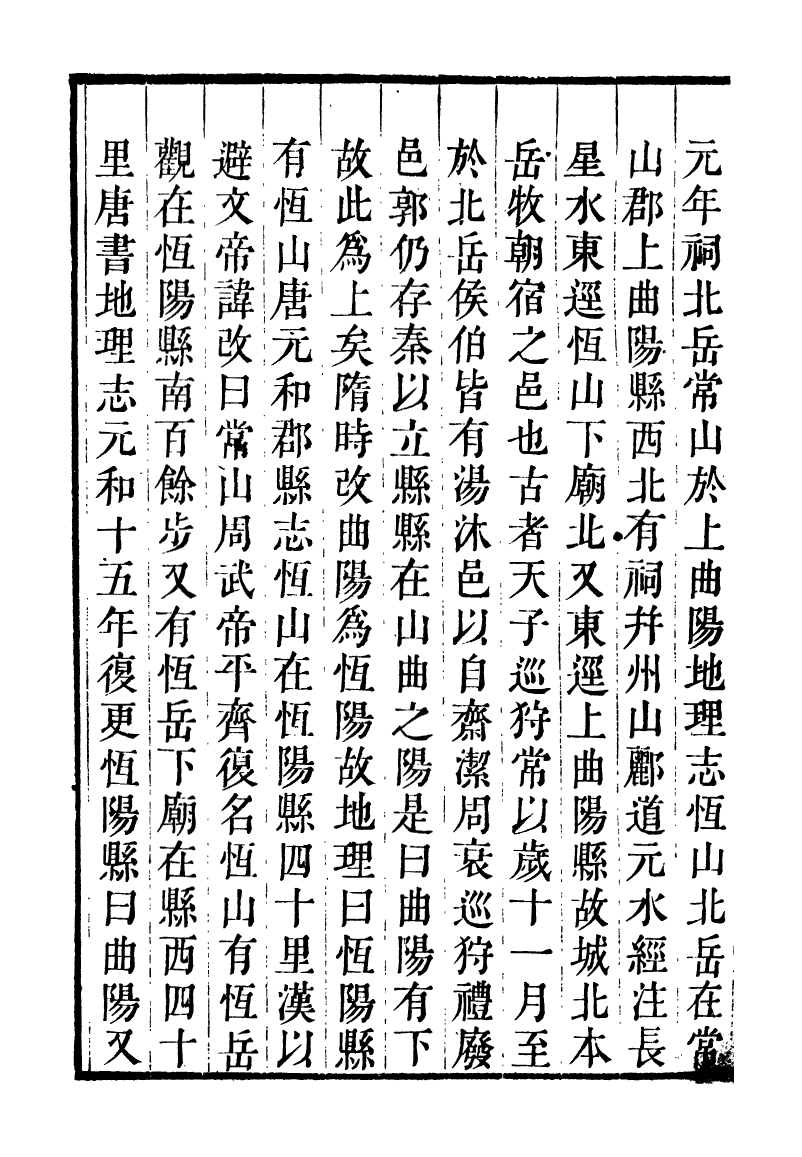 元年祠北岳常山於上曲陽地理志恆山北岳在常
山郡上曲陽縣西北有祠幷州山酈道元水經注長
星水東逕恆山下廟北又東逕上曲陽縣故城北本
岳牧朝宿之邑也古者天子巡狩常以歲十一月至
於北岳侯伯皆有湯沐邑以自齋潔周衰巡狩禮廢
邑郭仍存秦以立縣縣在山曲之陽是曰曲陽有下
故此爲上矣隋時改曲陽爲恆陽故地理曰恆陽縣
有恆山唐元和郡縣志恆山在恆陽縣四十里漢以
避文帝諱改曰常山周武帝平齊復名恆山有恆岳
觀在恆陽縣南百餘步又有恆岳下廟在縣西四十
里唐書地理志元和十五年復更恆陽縣曰曲陽又